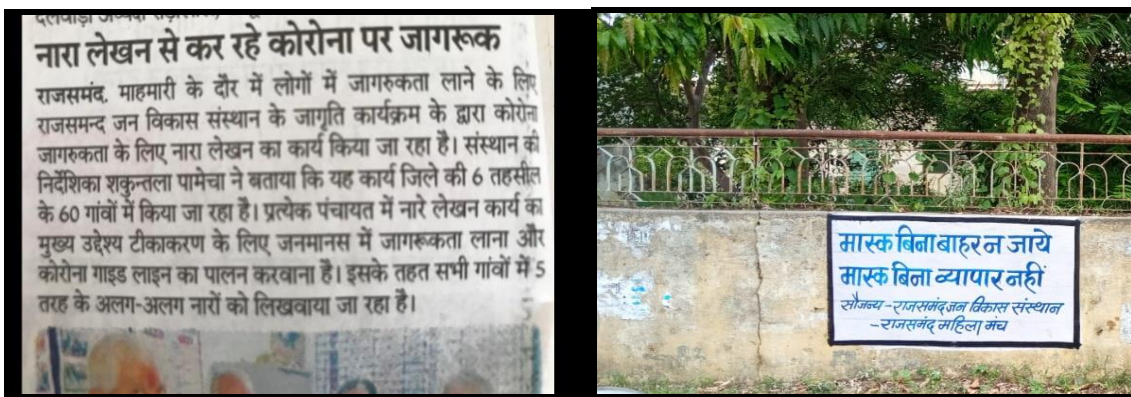 नारा लेखन से कर रहे कोरोना पर जागरूक
राजसमंद. माहमारी के दौर में लोगों में जागरुकता लाने के लिए
राजसमन्द जन विकास संस्थान के जागृति कार्यक्रम के द्वारा कोरोना
जागरुकता के लिए नारा लेखन का कार्य किया जा रहा है। संस्थान की
निर्देशिका शकुन्तला पामेचा ने बताया कि यह कार्य जिले की 6 तहसील
के 60 गांवों में किया जा रहा है। प्रत्येक पंचायत में नारे लेखन कार्य का
मुख्य उद्देश्य टीकाकरण के लिए जनमानस में जागरूकता लाना और
कोरोना गाइड लाइन का पालन करवाना है। इसके तहत सभी गांवों में 5
तरह के अलग-अलग नारों को लिखवाया जा रहा है।
मास्क बिना बाहर न जाये
मास्क बिना व्यापार नहीं
सौजन्य - राजसमंद जन विकास संस्थान
- राजसमंद महिला मंच